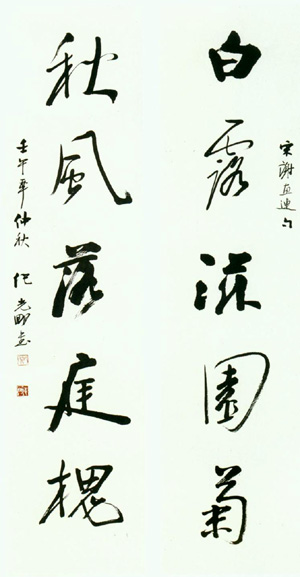 宋謝惠連句
白露滋園菊
秋風落庭槐
壬午年仲秋 光明書